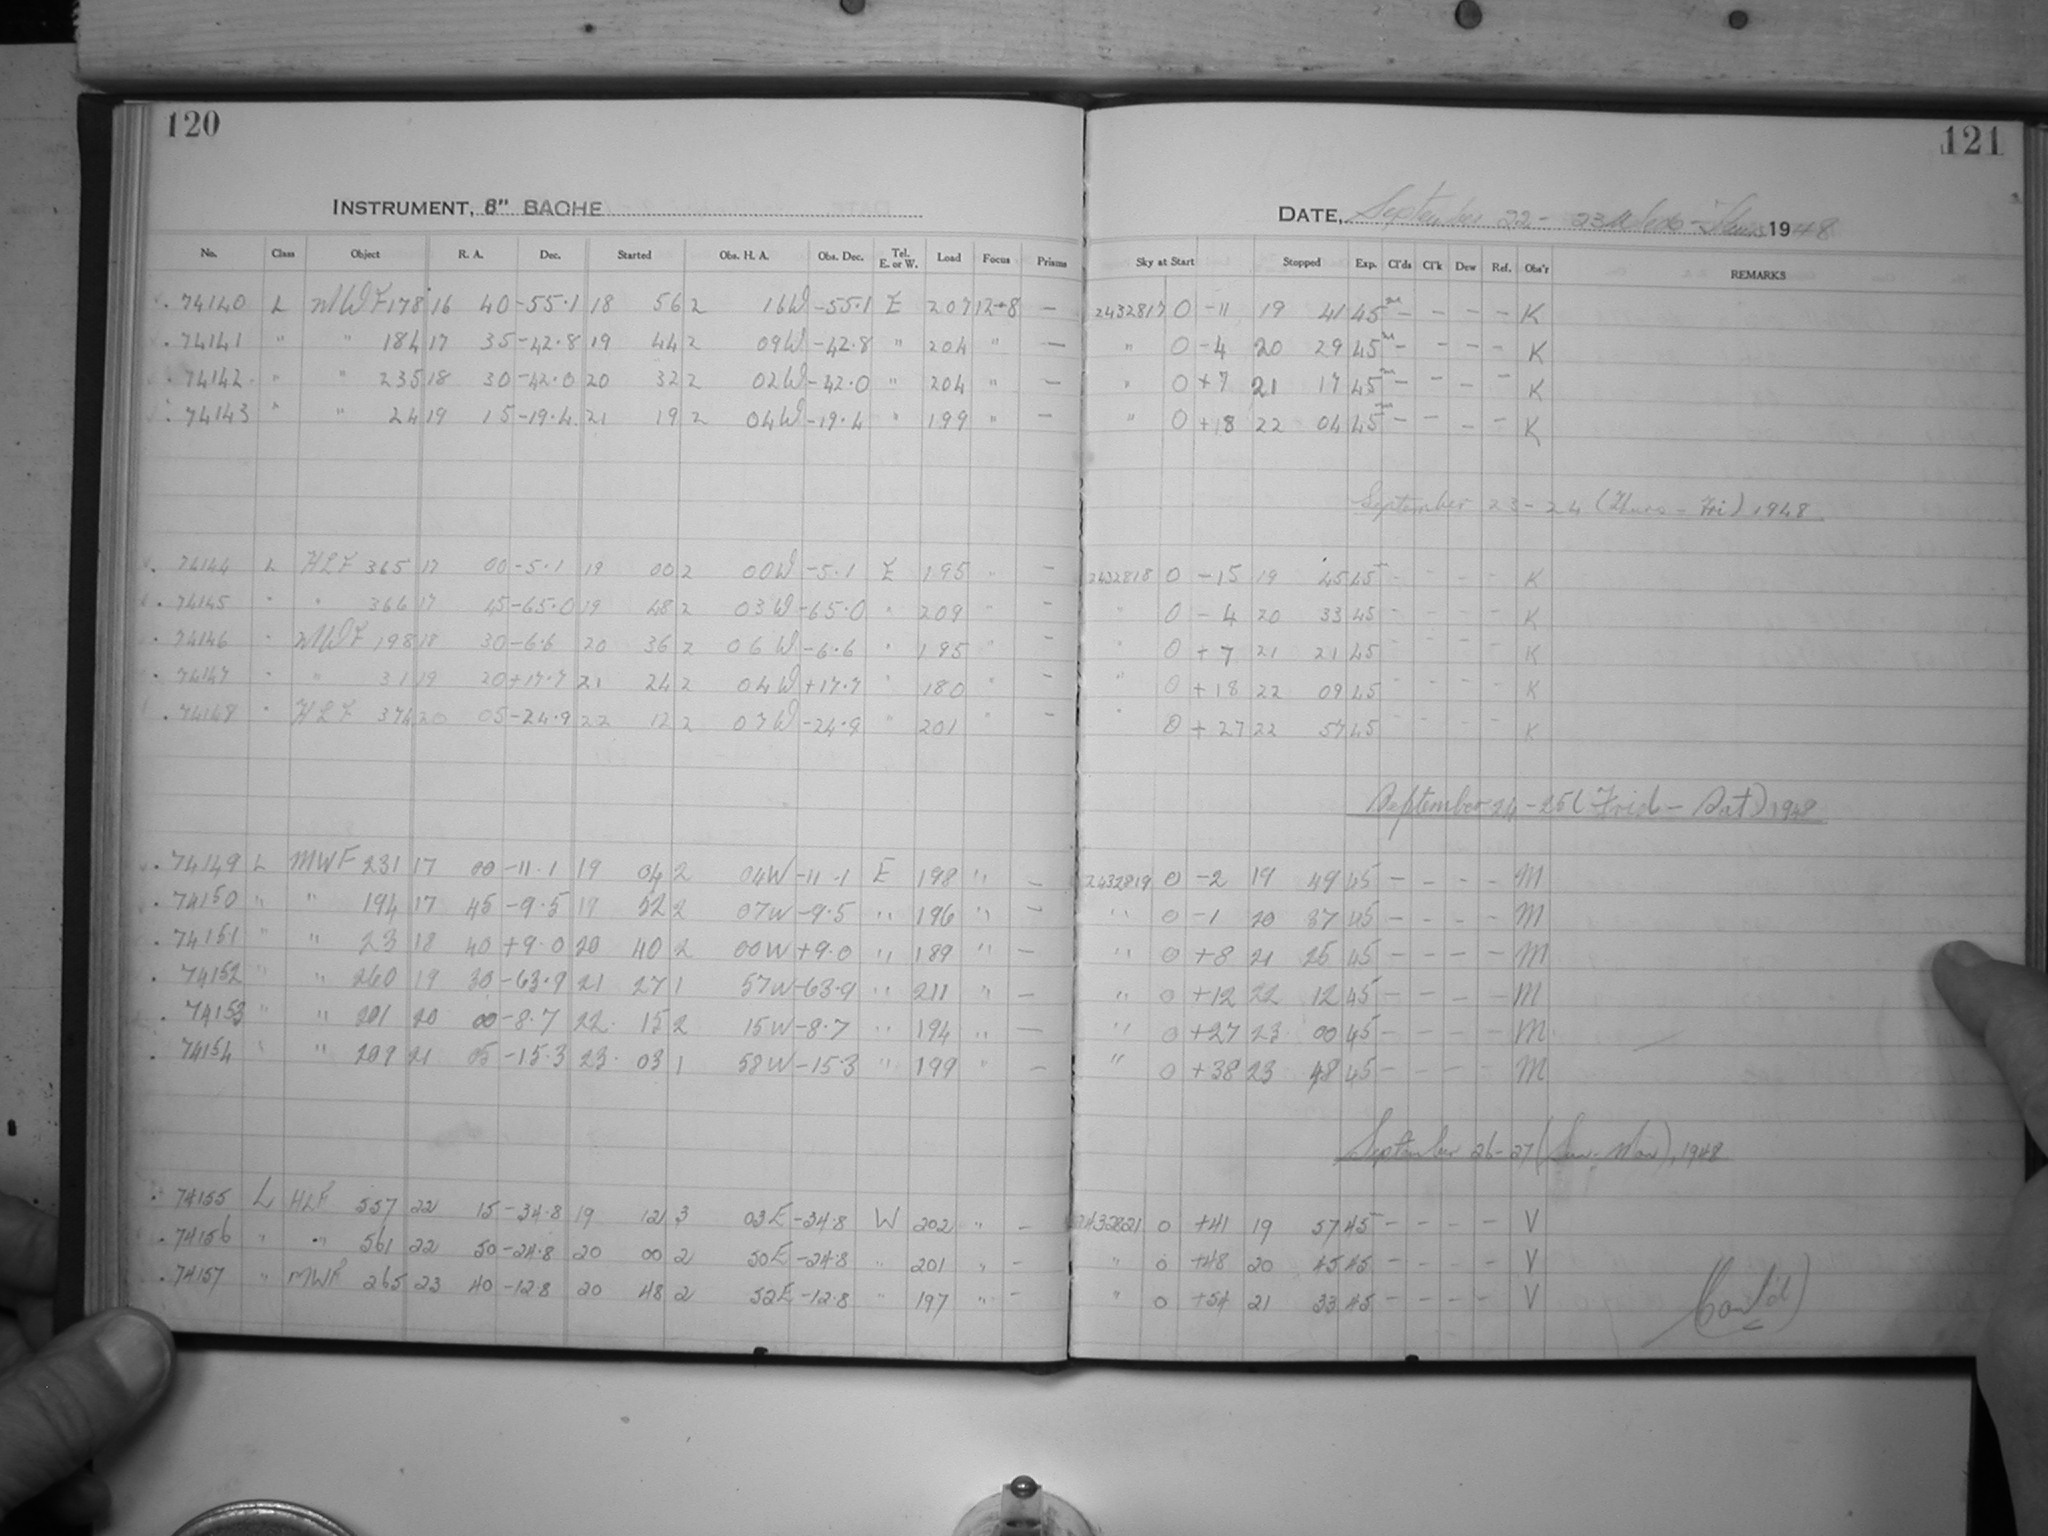 120
INSTRUMENT, 8" BACHE
No. Class Object R. A. Dec. Started Obs. H. A. Obs. Dec. Tel. E. or W. Load Focus Prisms
74140 L MWF 178 16 40 -55.1 18 56 2 16W -55.1 E 207 12.8 —
74141 " " 184 17 35 -42.8 19 44 2 09W -42.8 " 204 " —
74142 " " 235 18 30 -42.0 20 32 2 02W -42.0 " 204 " —
74143 " " 24 19 15 -19.4 21 19 2 04W -19.4 " 199 " —
74144 L HLF 365 17 00 -5.1 19 00 2 00W -5.1 E 195 " —
74145 " " 366 17 45 -65.0 19 48 2 03W -65.0 " 209 —
74146 " MWF 198 18 30 -6.6 20 36 2 06W -6.6 " 195 " —
74147 " " 31 19 20 +17.7 21 24 2 04W +17.7 " 180 " —
74148 " HLF 374 20 05 -24.9 22 12 2 07W -24.9 " 201 —
74149 L MWF 231 17 00 -11.1 19 04 2 04W -11.1 E 198 " —
74150 " " 194 17 45 -9.5 19 52 2 07W -9.5 " 196 " —
74151 " " 23 18 40 +9.0 20 40 2 00W +9.0 " 189 " —
74152 " " 260 19 30 -63.9 21 27 1 57W -63.9 " 211 " —
74153 " " 201 20 00 -8.7 22 15 2 15W -8.7 " 194 " —
74154 " " 209 21 05 -15.3 23 03 1 58W -15.3 " 199 " —
74155 L HLF 557 22 15 -34.8 19 12 3 03E -34.8 W 202 " —
74156 " " 561 22 50 -24.8 20 00 2 50E -24.8 " 201 " —
74157 " MWF 265 23 40 -12.8 20 48 2 52E -12.8 " 197 " —
121
DATE, September 22 - 23 Weds - Thurs 1948
Sky at Start Stopped Exp. Cl'ds Cl'k Dew Ref. Obs'r REMARKS
2432817 0 -11 19 41 45m — — — — K
" 0 -4 20 29 45m — — — — K
" 0 +7 21 17 45m — — — — K
" 0 +18 22 04 45m — — — — K
September 23 - 24 (Thurs - Fri) 1948
2432818 0 -15 19 45 45 — — — — K
" 0 -4 20 33 45 — — — — K
" 0 +7 21 21 45 — — — — K
" 0 +18 22 09 45 — — — — K
" 0 +27 22 57 45 — — — — K
September 24 - 25 (Frid - Sat) 1948
2432819 0 -2 19 49 45 — — — — M
" 0 -1 20 37 45 — — — — M
" 0 +8 21 25 45 — — — — M
" 0 +12 22 12 45 — — — — M
" 0 +27 23 00 45 — — — — M
" 0 +38 23 48 45 — — — — M
September 26 - 27 (Sun - Mon), 1948
2432821 0 +41 19 57 45 — — — — V
" 0 +48 20 45 45 — — — — V
" 0 +54 21 33 45 — — — — V
(Cont'd)